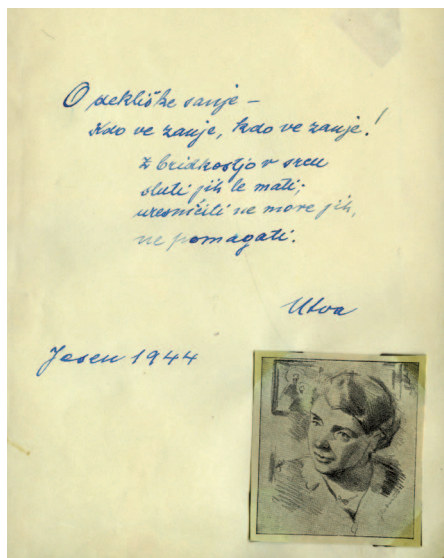 O dekliške sanje –
kdo ve zanje, kdo ve zanje!
Z bridkostjo v srcu
sluti jih le mati;
uresničiti ne more jih,
ne pomagati.
Utva
Jesen 1944